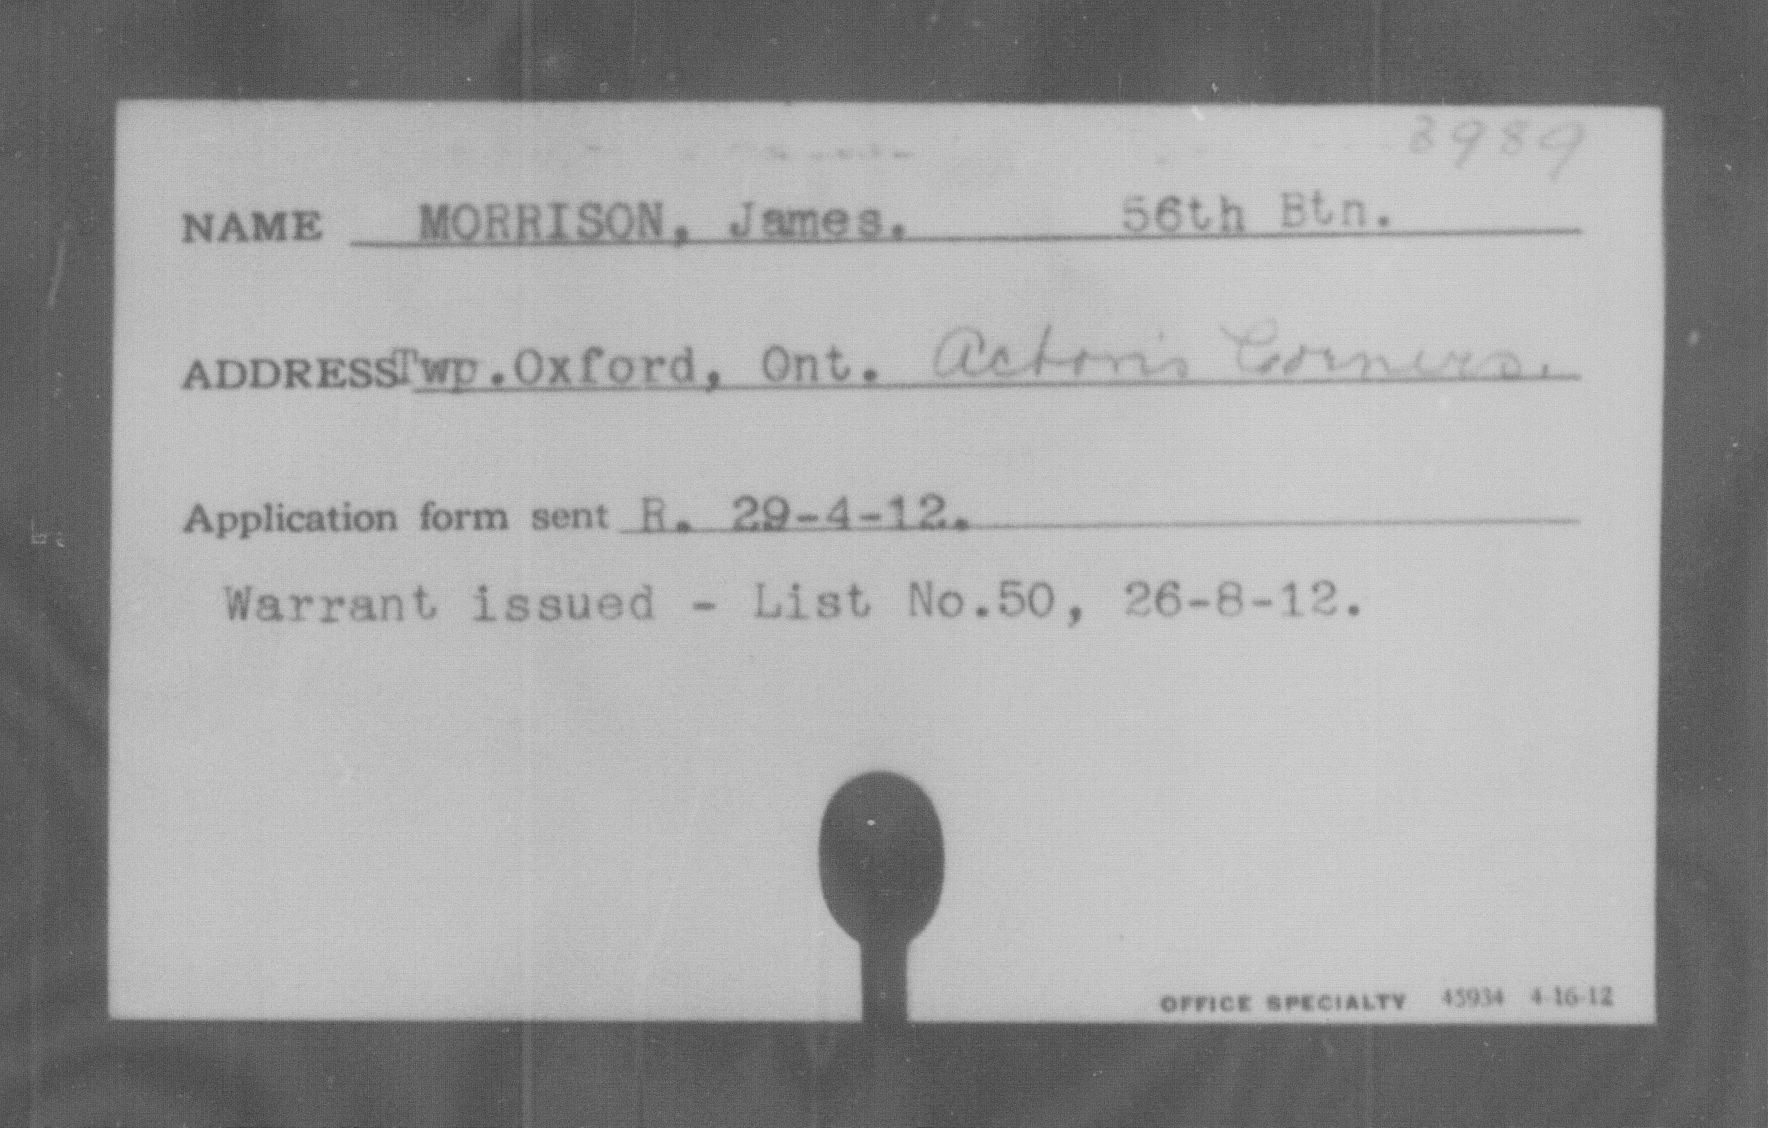 3989
NAME MORRISON, James. 56th Btn.
ADDRESS Twp.Oxford, Ont. Acton's Corners.
Application form sent R. 29-4-12.
Warrant issued - List No.50, 26-8-12.
OFFICE SPECIALTY 45934 4-16-12